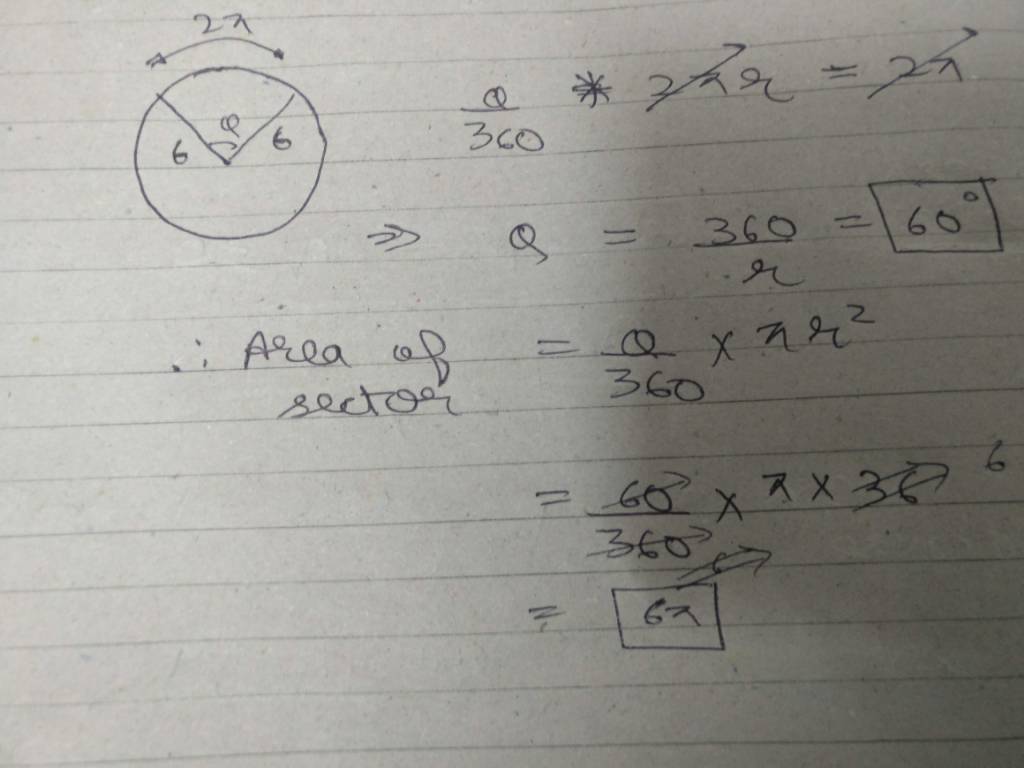 2π
6 θ 6
θ/360 * 2πr = 2π
⇒ θ = 360/r = 60°
∴ Area of sector = θ/360 × πr²
= 60/360 × π × 36 6
6
= 6π